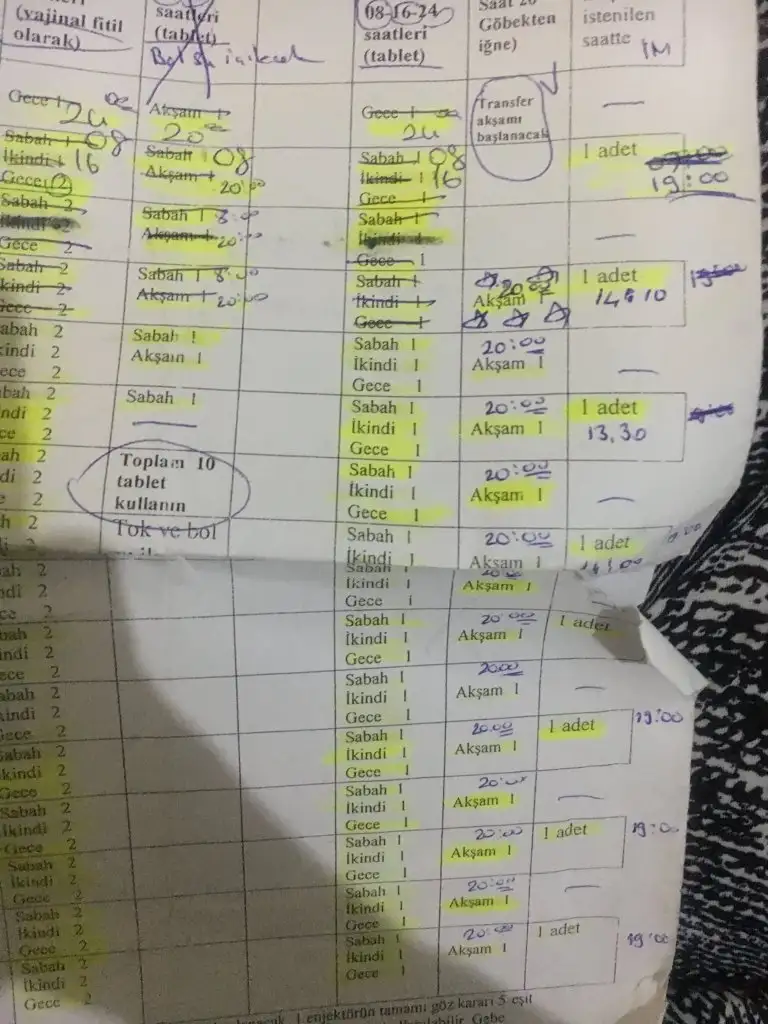 (vajinal fitil
olarak)
saatleri
(tablet)
Bol su içilecek
08-16-24
saatleri
(tablet)
Göbekten
iğne)
istenilen
saatte
İM
Gece 1
24 00
Akşam 1
20 00
Gece 1
24
Transfer
akşamı
başlanacak
Sabah 1 08
İkindi 1 16
Gece 2
Sabah 1 08
Akşam 1 20:00
Sabah 1 08
İkindi 1 16
Gece 1
1 adet
19:00
Sabah 2
İkindi 2
Gece 2
Sabah 1 8:00
Akşam 1 20:00
Sabah 1
İkindi 1
Gece 1
Sabah 2
kindi 2
Gece 2
Sabah 1 8:00
Akşam 1 20:00
Sabah 1
İkindi 1
Gece 1
20:00
Akşam 1
1 adet
14:10
abah 2
kindi 2
ece 2
Sabah 1
Akşam 1
Sabah 1
İkindi 1
Gece 1
20:00
Akşam 1
bah 2
ndi 2
ce 2
Sabah 1
Sabah 1
İkindi 1
Gece 1
20:00
Akşam 1
1 adet
13,30
ah 2
di 2
2
Toplam 10
tablet
kullanın
Tok ve bol
Sabah 1
İkindi 1
Gece 1
20:00
Akşam 1
h 2
Sabah 1
İkindi 1
20:00
Akşam 1
1 adet
14:00
ah 2
ndi 2
ce 2
Sabah 1
İkindi 1
Gece 1
Akşam 1
bah 2
indi 2
ece 2
Sabah 1
İkindi 1
Gece 1
20:00
Akşam 1
1 adet
abah 2
kindi 2
Gece 2
Sabah 1
İkindi 1
Gece 1
20:00
Akşam 1
Sabah 2
kindi 2
Gece 2
Sabah 1
İkindi 1
Gece 1
20:00
Akşam 1
1 adet
19:00
Sabah 2
İkindi 2
Gece 2
Sabah 1
İkindi 1
Gece 1
20:00
Akşam 1
Sabah 2
İkindi 2
Gece 2
Sabah 1
İkindi 1
Gece 1
20:00
Akşam 1
1 adet
19:00
Sabah 2
İkindi 2
Gece 2
Sabah 1
İkindi 1
Gece 1
20:00
Akşam 1
Sabah 2
İkindi 2
Gece 2
Sabah 1
İkindi 1
Gece 1
20:00
Akşam 1
1 adet
19:00
1 enjektörün tamamı göz kararı 5 eşit